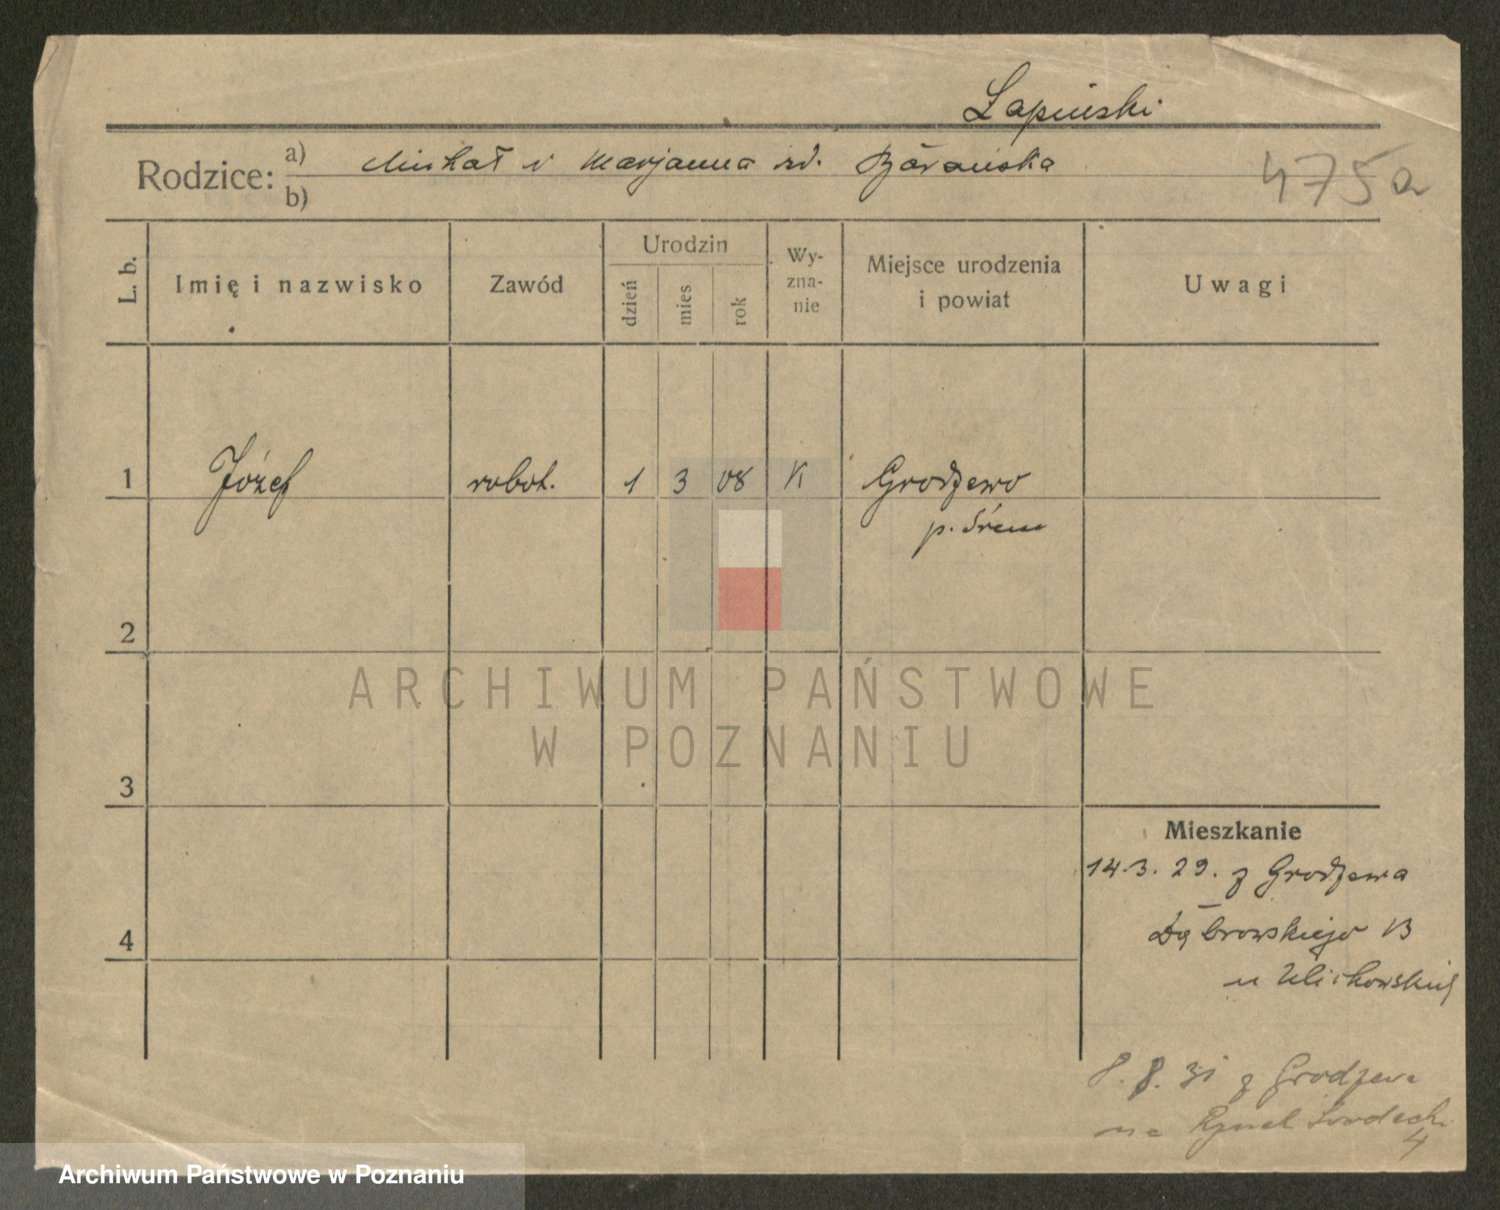 Łapiński
Rodzice: a) Michał i Marjanna zd. Barańska
b)
475a
L. b. Imię i nazwisko Zawód Urodzin dzień mies rok Wyznanie Miejsce urodzenia i powiat Uwagi
1 Józef robot. 1 3 08 K Grodzewo
p. Śrem
2
ARCHIWUM PAŃSTWOWE
W POZNANIU
3
Mieszkanie
14.3.29. z Grodzewa
4 Dąbrowskiego 13
u
8.8.31 z Grodzewa
na Rynek 4
Archiwum Państwowe w Poznaniu